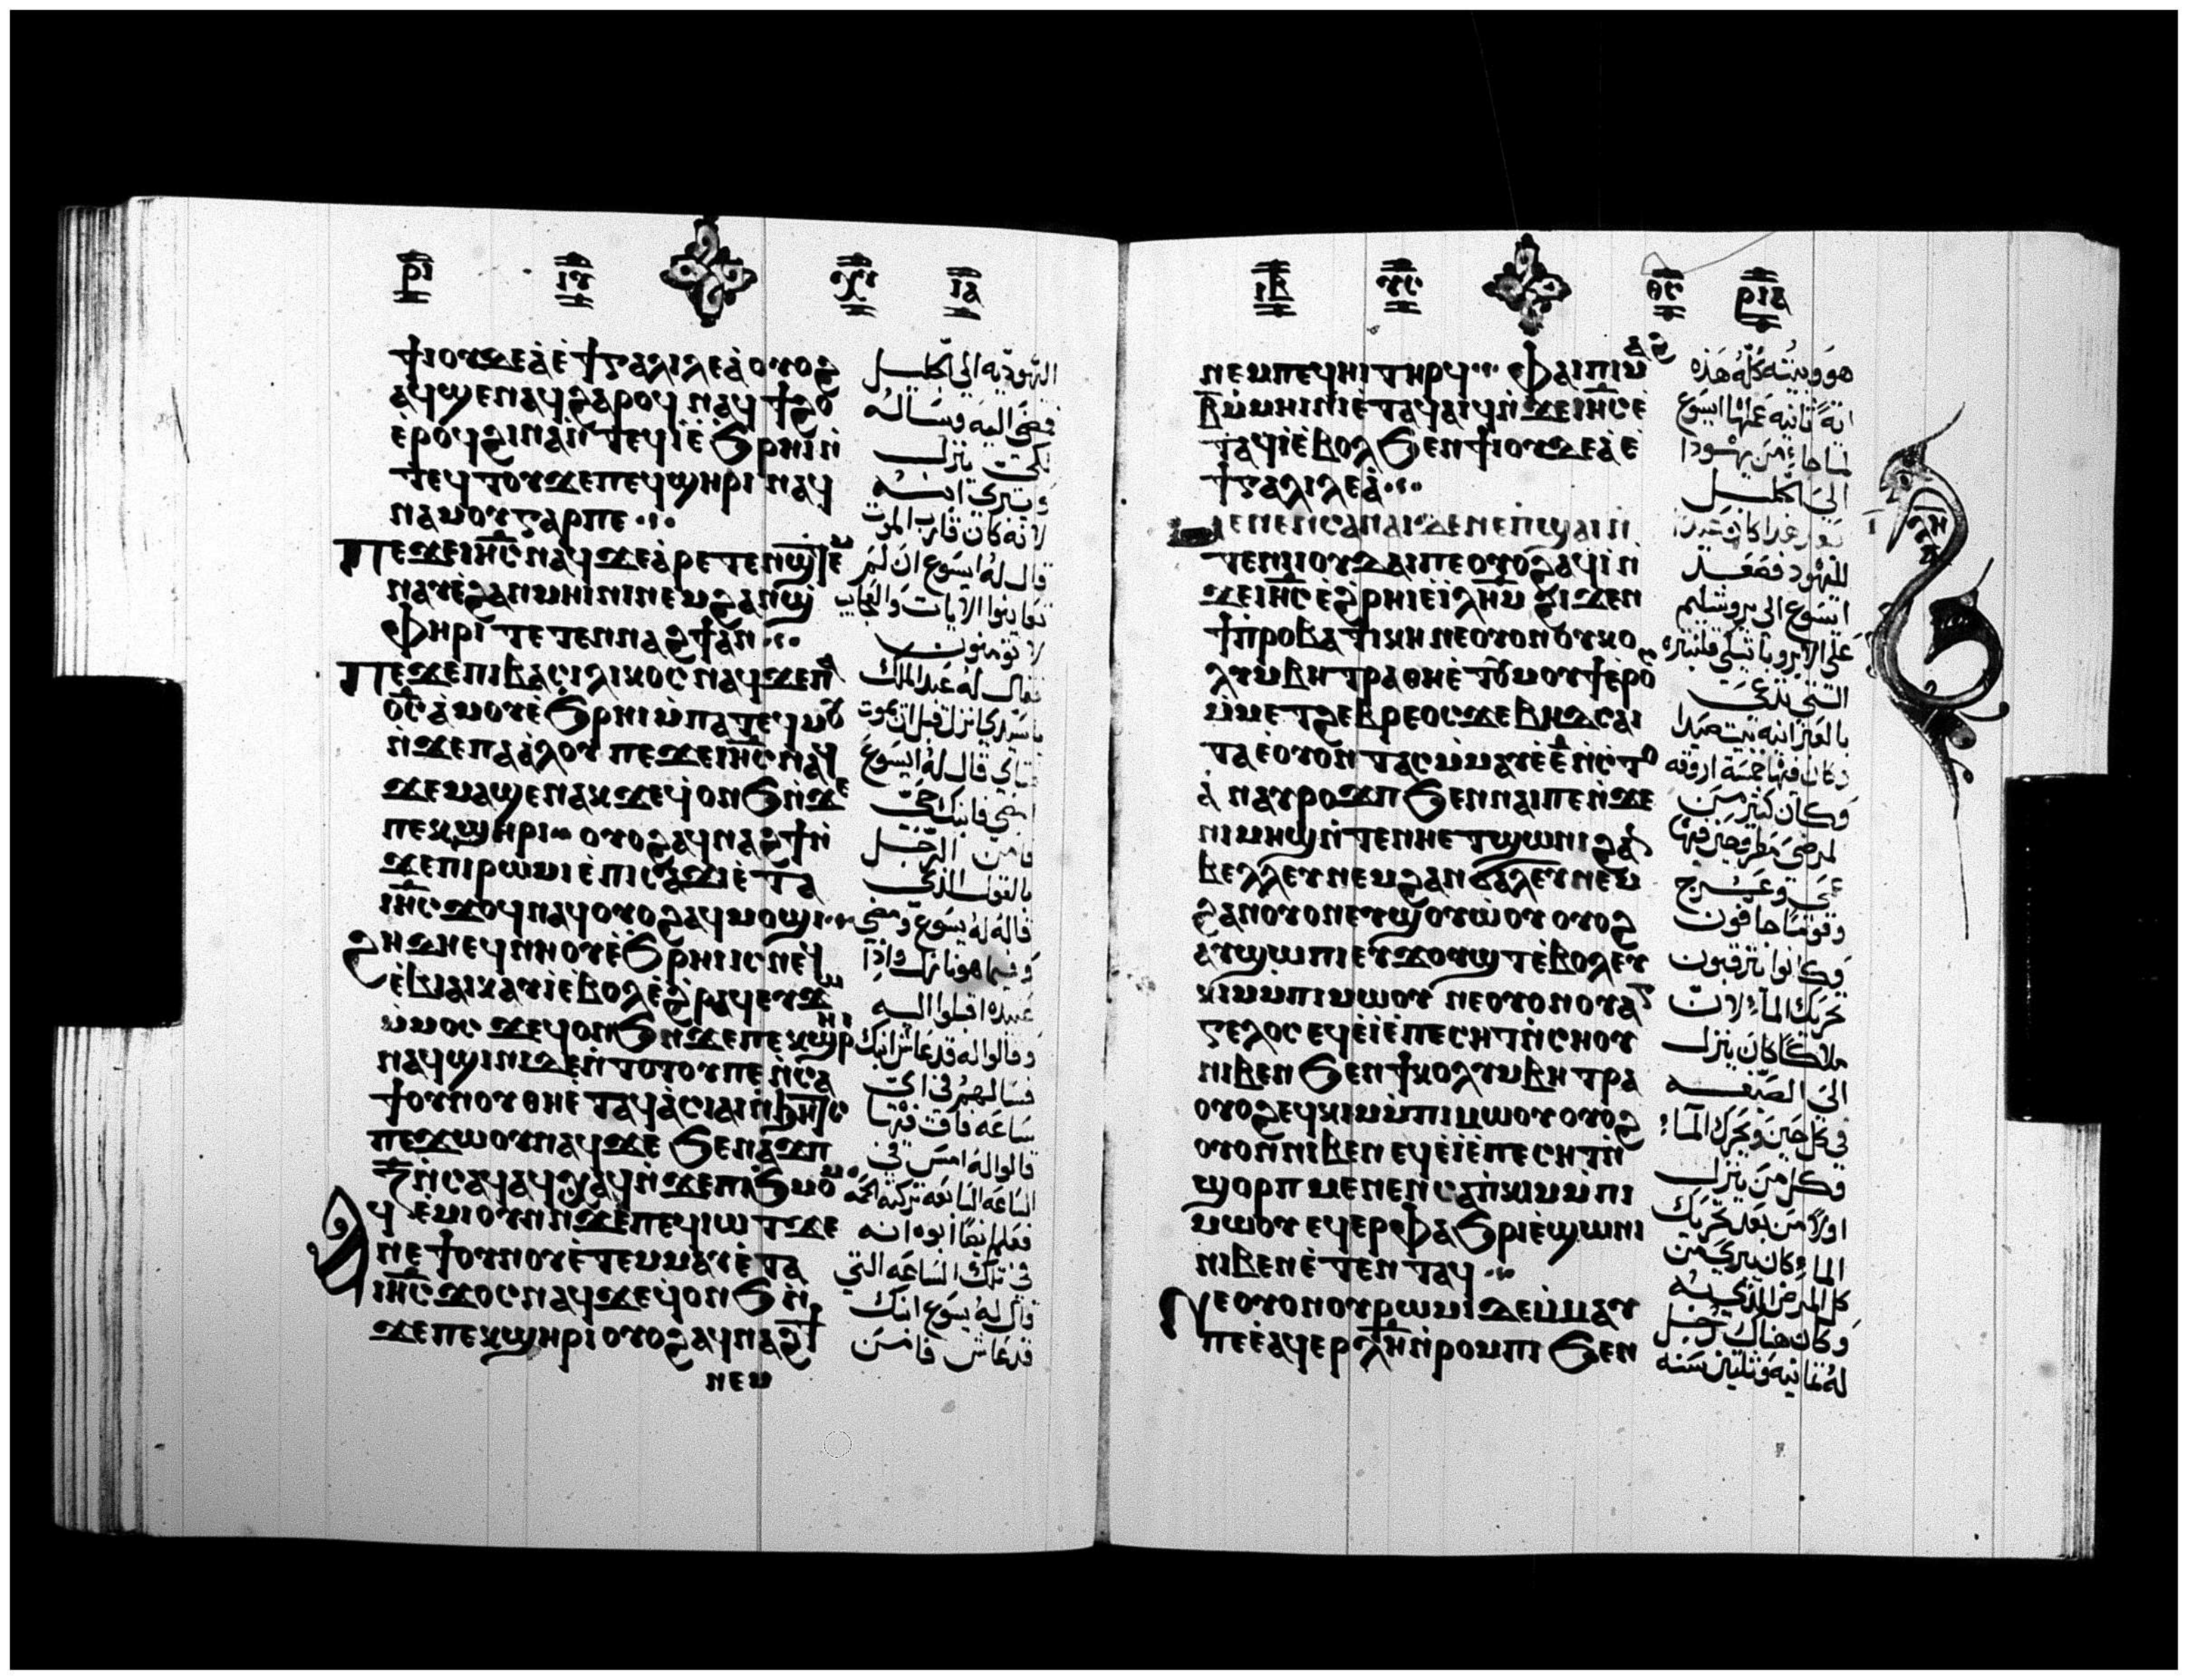 ⲣⲓ ⲓⲅ ⲓⲁ
ϯⲓⲟⲩⲇⲉⲁ̀ⲉ̀ϯⲅⲁⲗⲓⲗⲉⲁ̀ⲟⲩⲟϩ
ⲁϥϣⲉⲛⲁϥϩⲁⲣⲟϥ ⲛⲁϥϯϩⲟ
ⲉ̀ⲣⲟϥϩⲓⲛⲁⲛ̀ⲧⲉϥⲓ̀ⲉ̀ϧⲣⲏⲓⲛ̀
ⲧⲉϥⲧⲟⲩϫⲉⲡⲉϥϣⲏⲣⲓ ⲛⲁϥ
ⲛⲁⲙⲟⲩⲅⲁⲣⲡⲉ
ⲡⲉϫⲉⲓⲏ̅ⲥ̅ⲛⲁϥϫⲉⲁ̀ⲣⲉⲧⲉⲛϣⲧⲉⲙ
ⲛⲁⲩⲉ̀ϩⲁⲛⲙⲏⲓⲛⲓⲛⲉⲙϩⲁⲛϣ
ⲫⲏⲣⲓ ⲧⲉⲧⲉⲛⲛⲁϩϯⲁⲛ
ⲡⲉϫⲉⲡⲓⲃⲁⲥⲓⲗⲓⲕⲟⲥ ⲛⲁϥϫⲉⲡⲁ
ϭ̅ⲥ̅ⲁ̀ⲙⲟⲩⲉ̀ϧⲣⲏⲓⲙ̀ⲡⲁⲧⲉϥⲙⲟⲩ
ⲛ̀ϫⲉⲡⲁⲁ̀ⲗⲟⲩ ⲡⲉϫⲉⲓⲏ̅ⲥ̅ⲛⲁϥ
ϫⲉⲙⲁϣⲉⲛⲁⲕϫⲉϥ̀ⲟⲛϧⲛ̀ϫⲉ
ⲡⲉⲕϣⲏⲣⲓ ⲟⲩⲟϩⲁϥⲛⲁϩϯⲛ̀
ϫⲉⲡⲓⲣⲱⲙⲓⲉ̀ⲡⲓⲥⲁϫⲓⲉ̀ⲧⲁ
ⲓⲏ̅ⲥ̅ϫⲟϥⲛⲁϥⲟⲩⲟϩⲁϥⲙⲟϣⲓ
ϩⲏⲇⲏⲉϥⲛⲏⲟⲩⲉ̀ϧⲣⲏⲓⲓⲥⲛⲉϥ
ⲉ̀ⲃⲓⲁⲓⲕⲁⲩⲓ̀ⲉ̀ⲃⲟⲗⲉ̀ϩⲣⲁϥⲉⲩϫⲱ
ⲙ̀ⲙⲟⲥ ϫⲉϥⲟⲛϧⲛ̀ϫⲉⲡⲉⲕϣⲏⲣⲓ
ⲛⲁϥϣⲓⲛⲓϫⲉⲛ̀ⲧⲟⲧⲟⲩⲡⲉⲛ̀ⲥⲁ
ϯⲟⲩⲛⲟⲩⲑⲏⲉ̀ⲧⲁϥⲁ̀ⲥⲓⲁⲓⲛ̀ϧⲏⲧⲥ
ⲡⲉϫⲱⲟⲩⲛⲁϥϫⲉ ϧⲉⲛⲁ̀ϫⲡ
ⲍ̅ⲛ̀ⲥⲁϥⲁϥⲭⲁϥⲛ̀ϫⲉⲡⲓϧⲙⲟⲙ
ⲁϥⲉ̀ⲙⲓⲟⲩⲛⲛ̀ϫⲉⲡⲉϥⲓⲱⲧϫⲉ
ⲛⲉϯⲟⲩⲛⲟⲩⲉ̀ⲧⲉⲙⲙⲁⲩⲉ̀ⲧⲁ
ⲓⲏ̅ⲥ̅ϫⲟⲥⲛⲁϥϫⲉϥ̀ⲟⲛϧⲛ̀
ϫⲉⲡⲉⲕϣⲏⲣⲓⲟⲩⲟϩⲁϥⲛⲁϩϯ
ⲛⲉⲙ
اليهودية الى الجليل
فمضى اليه وساله
لكى ينزل
ويبرى ابنه
لانه كان قارب الموت
قال له ايسوع ان لم
تعاينوا الايات والعجايب
لا تومنون
فقال له عبد الملك
يا سيدى انزل قبل ان يموت
فتاى قال له ايسوع
امضى فابنك حى
فامن الرجل
بالقول الذى
قاله له يسوع ومضى
وفيما هو نازل واذا
عبيده اقبلوا اليه
وقالوا له قد عاش ابنك
فسالهم فى اى
ساعه فاق فيها
قالوا له امس فى
الساعه السابعه تركته الحمى
فعلم ابوه انه
فى تلك الساعه التى
قال له يسوع ابنك
قد عاش فامن
ⲓⲃ ⲣⲓⲁ
ⲛⲉⲙⲡⲉϥⲏⲓ ⲧⲏⲣϥ ⲫⲁⲓⲡⲓⲙⲁϩ
ⲃ̅ⲙ̀ⲙⲏⲓⲛⲓⲉ̀ⲧⲁϥⲁⲓϥⲛ̀ϫⲉⲓⲏ̅ⲥ̅ⲉ̀
ⲧⲁϥⲓ̀ⲉ̀ⲃⲟⲗϧⲉⲛϯⲓⲟⲩⲇⲉⲁ̀ⲉ̀
ϯⲅⲁⲗⲓⲗⲉⲁ̀
ⲙⲉⲛⲉⲛⲥⲁⲛⲁⲓⲇⲉⲛⲉⲡ̀ϣⲁⲓⲛ̀
ⲧⲉⲛⲓⲟⲩⲇⲁⲓⲡⲉⲟⲩⲟϩⲁϥⲓ̀ⲛ̀
ϫⲉⲓⲏ̅ⲥ̅ⲉ̀ϩⲣⲏⲓⲉ̀ⲓ̅ⲗ̅ⲏ̅ⲙ̅ ϩⲓϫⲉⲛ
ϯⲡ̀ⲣⲟⲃⲁⲧⲓⲕⲏ ⲛⲉⲟⲩⲟⲛⲟⲩⲕⲟ
ⲗⲩⲙⲃⲏⲧⲣⲁ ⲑⲏⲉ̀ⲧⲟⲩⲙⲟⲩϯⲉ̀ⲣⲟⲥ
ⲙ̀ⲙⲉⲧϩⲉⲃⲣⲉⲟⲥϫⲉⲃⲏⲇⲥⲁⲓ
ⲧⲁⲉ̀ⲟⲩⲟⲛ ⲧⲁⲥⲙ̀ⲙⲁⲩⲉ̀ⲉ̅ⲛ̀ⲥⲧⲟ
ⲁ̀ ⲛⲁⲩⲣⲟϫⲡ ϧⲉⲛⲛⲁⲓⲡⲉⲛ̀ϫⲉ
ⲛⲓⲙⲏϣⲛ̀ⲧⲉⲛⲏⲉⲧϣⲱⲛⲓ ϩⲁⲛ
ⲃⲉⲗⲗⲉⲩⲛⲉⲙϩⲁⲛϭⲁⲗⲉⲩⲛⲉⲙ
ϩⲁⲛⲟⲩⲟⲛⲉⲩϣⲟⲩⲱ̀ⲟⲩ ⲟⲩⲟϩ
ⲁⲩϣⲱⲡⲓⲉⲩϫⲟⲩϣⲧⲉ̀ⲃⲟⲗⲉⲩ
ⲕⲓⲙⲙ̀ⲡⲓⲙⲱⲟⲩ ⲛⲉⲟⲩⲟⲛⲟⲩⲁⲅ
ⲅⲉⲗⲟⲥ ⲉϥⲉ̀ⲓ̀ⲉ̀ⲡⲉⲥⲏⲧⲛ̀ⲥⲏⲟⲩ
ⲛⲓⲃⲉⲛ ϧⲉⲛϯⲕⲟⲗⲩⲙⲃⲏⲧⲣⲁ
ⲟⲩⲟϩⲉϥⲕⲓⲙⲙ̀ⲡⲓⲙⲱⲟⲩ ⲟⲩⲟϩ
ⲟⲩⲟⲛⲛⲓⲃⲉⲛ ⲉϥⲉ̀ⲓ̀ⲉ̀ⲡⲉⲥⲏⲧⲛ̀
ϣⲟⲣⲡ ⲙⲉⲛⲉⲛⲥⲁⲡ̀ⲕⲓⲙⲙ̀ⲡⲓ
ⲙⲱⲟⲩ ⲉϥⲉⲣⲫⲁϧⲣⲓⲉ̀ϣⲱⲛⲓ
ⲛⲓⲃⲉⲛⲉ̀ⲧⲉⲛⲧⲁϥ
ⲛⲉⲟⲩⲟⲛⲟⲩⲣⲱⲙⲓ ⲇⲉⲙ̀ⲙⲁⲩ
ⲡⲉⲉ̀ⲁϥⲉⲣ ⲗ̅ⲏ̅ⲛ̀ⲣⲟⲙⲡⲓ ϧⲉⲛ
هو وبيته كله هذه
اية ثانيه عملها ايسوع
لما جاء من يهودا
الى الجليل
بعد هذا كان عيد
لليهود فصعد
ايسوع الى يروشليم
على الابروباتيكى قلنبثره
التى تدعى
بالعبرانيه بيت صيدا
وكان فيها خمسة اروقه
وكان كثير من
المرضى مطروحين فيها
عمى وعرج
وقوما جافون
وكانوا يترقبون
تحريك الماء لان
ملاكا كان ينزل
الى الصبغه
فى كل حين ويحرك الماء
وكل من ينزل
اولا من بعد تحريك
الما وكان يبرى من
كل المرض الذى به
وكان هناك رجل
له ثمانيه وثلثين سنه
ⲗⲏ